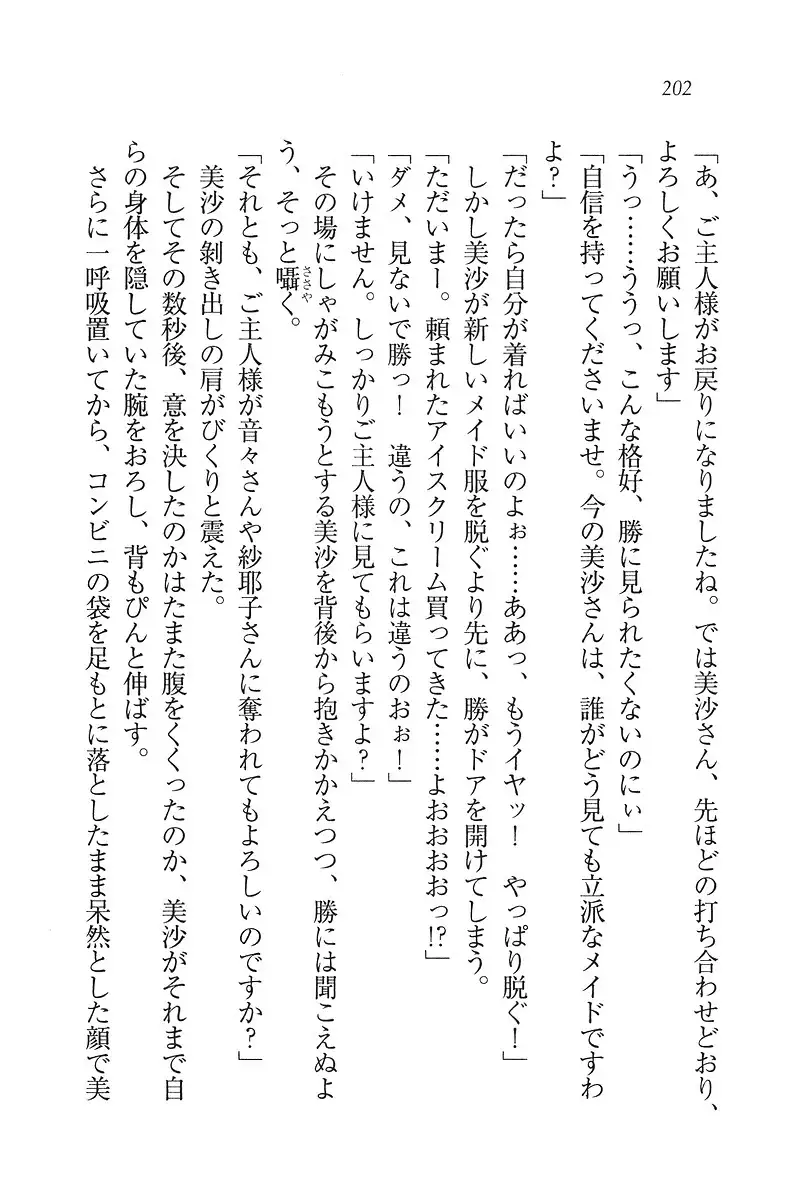 202
「あ、ご主人様がお戻りになりましたね。では美沙さん、先ほどの打ち合わせどおり、
よろしくお願いします」
「うっ……ううっ、こんな格好、勝に見られたくないのにぃ」
「自信を持ってくださいませ。今の美沙さんは、誰がどう見ても立派なメイドですわ
よ?」
「だったら自分が着ればいいのよぉ……ああっ、もうイヤッ! やっぱり脱ぐ!」
しかし美沙が新しいメイド服を脱ぐより先に、勝がドアを開けてしまう。
「ただいまー。頼まれたアイスクリーム買ってきた……よおおおおっ!?」
「ダメ、見ないで勝っ! 違うの、これは違うのおぉ!」
「いけません。しっかりご主人様に見てもらいますよ?」
その場にしゃがみこもうとする美沙を背後から抱きかかえつつ、勝には聞こえぬよ
う、そっと囁く。
ささや
「それとも、ご主人様が音々さんや紗耶子さんに奪われてもよろしいのですか?」
美沙の剝き出しの肩がびくりと震えた。
そしてその数秒後、意を決したのかはたまた腹をくくったのか、美沙がそれまで自
らの身体を隠していた腕をおろし、背もぴんと伸ばす。
さらに一呼吸置いてから、コンビニの袋を足もとに落としたまま呆然とした顔で美